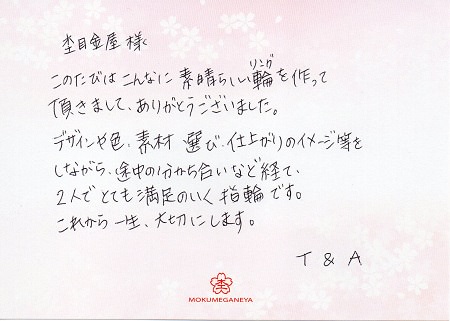 杢目金屋 様へ
このたびはこんなに素晴らしい輪を作って
リング
頂きまして、ありがとうございました。
デザインや色、素材 選び、仕上がりのイメージ等を
しながら、途中の分かち合いなど経て、
2人でとても満足のいく指輪です。
これから一生、大切にします。
T & A
MOKUMEGANEYA